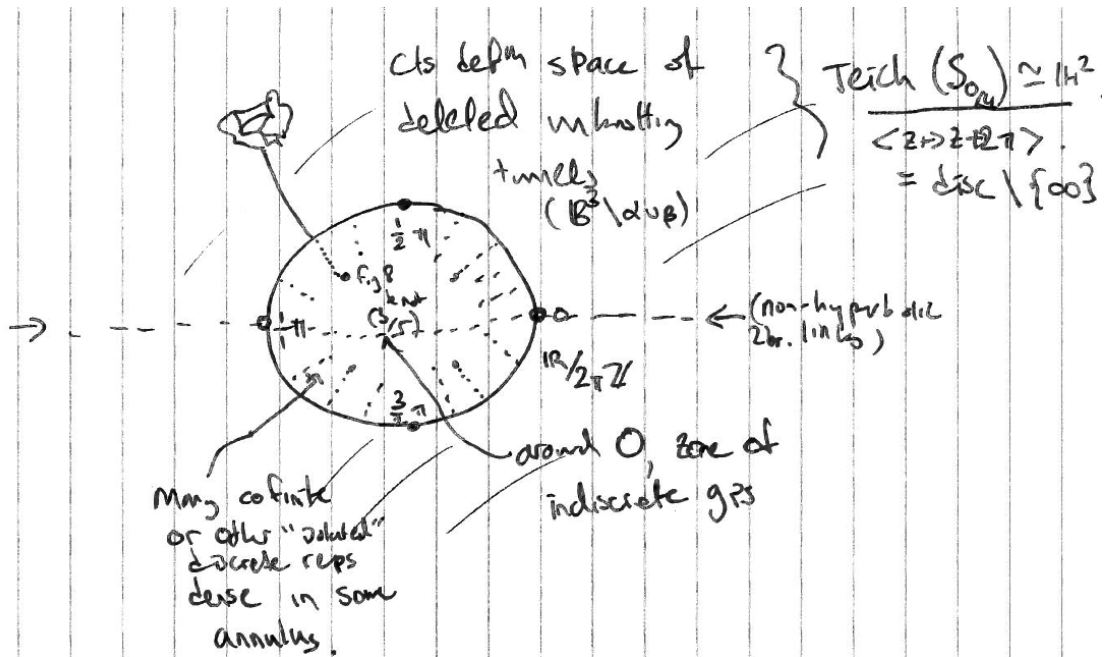 cts defm space of
deleted unknotting
tunnels
(B³ \ α∪β)
Teich (S₀,₄) ≃ ℍ²
<z↦z+2π>.
= disc \ {∞}
½ π
fig 8
knot
(3/5)
π
0
ℝ/2πℤ
(non-hyperbolic
2br. links)
around 0, zone of
indiscrete gps
Many cofinite
or other "isolated"
discrete reps
dense in some
annulus.